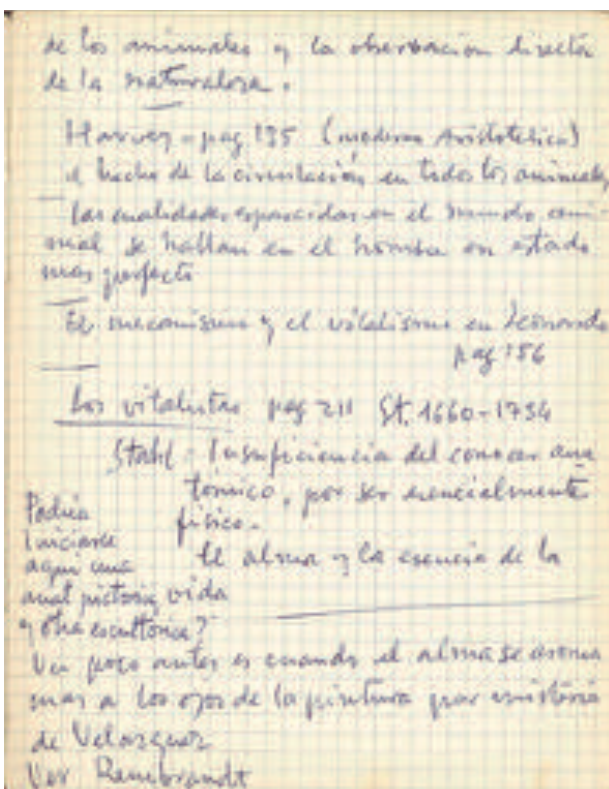 de los animales y la observacion directa
de la naturaleza.
Harvey - pag 195 (moderno Aristotelico)
el hecho de la circulación en todos los animales
Las cualidades esparcidas en el mundo ani-
mal se hallan en el hombre en estado
mas perfecto
El mecanismo y el vitalismo en Leonardo
pag 186
Los vitalistas pag 211 St. 1660-1734
Stahl - Insuficiencia del conocer ana
tomico, por ser esencialmente
fisico.
El alma y la esencia de la
vida
Podria
iniciarse
aqui una
anat pictorica
y otra escultorica?
Un poco antes es cuando el alma se asoma
mas a los ojos de la pintura por
de Velazquez
Ver Rembrandt